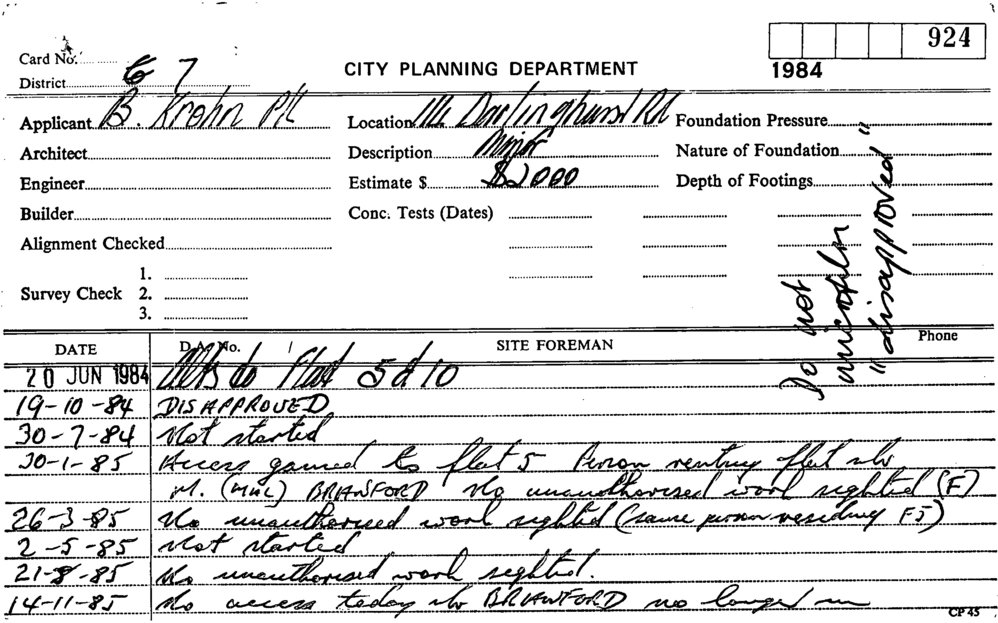 924
Card No.
CITY PLANNING DEPARTMENT
1984
District 6 7
Applicant B. Krohn P/L
Location Darlinghurst Rd
Foundation Pressure
Architect
Description Minor
Nature of Foundation
Engineer
Estimate $ $2000
Depth of Footings
Builder
Conc. Tests (Dates)
Alignment Checked
Survey Check
1.
2.
3.
Do not
microfilm
"disapproved"
DATE
D.A. No.
SITE FOREMAN
Phone
20 JUN 1984 Alts to Flat 5 & 10
19-10-84 DISAPPROVED
30-7-84 Not started
30-1-85 Access gained to flat 5 Person renting flat
M. BRANSFORD No unauthorised work sighted (F)
26-3-85 No unauthorised work sighted (same person residing F5)
2-5-85 Not started
21-8-85 No unauthorised work sighted.
14-11-85 No access today no longer in
CP 45